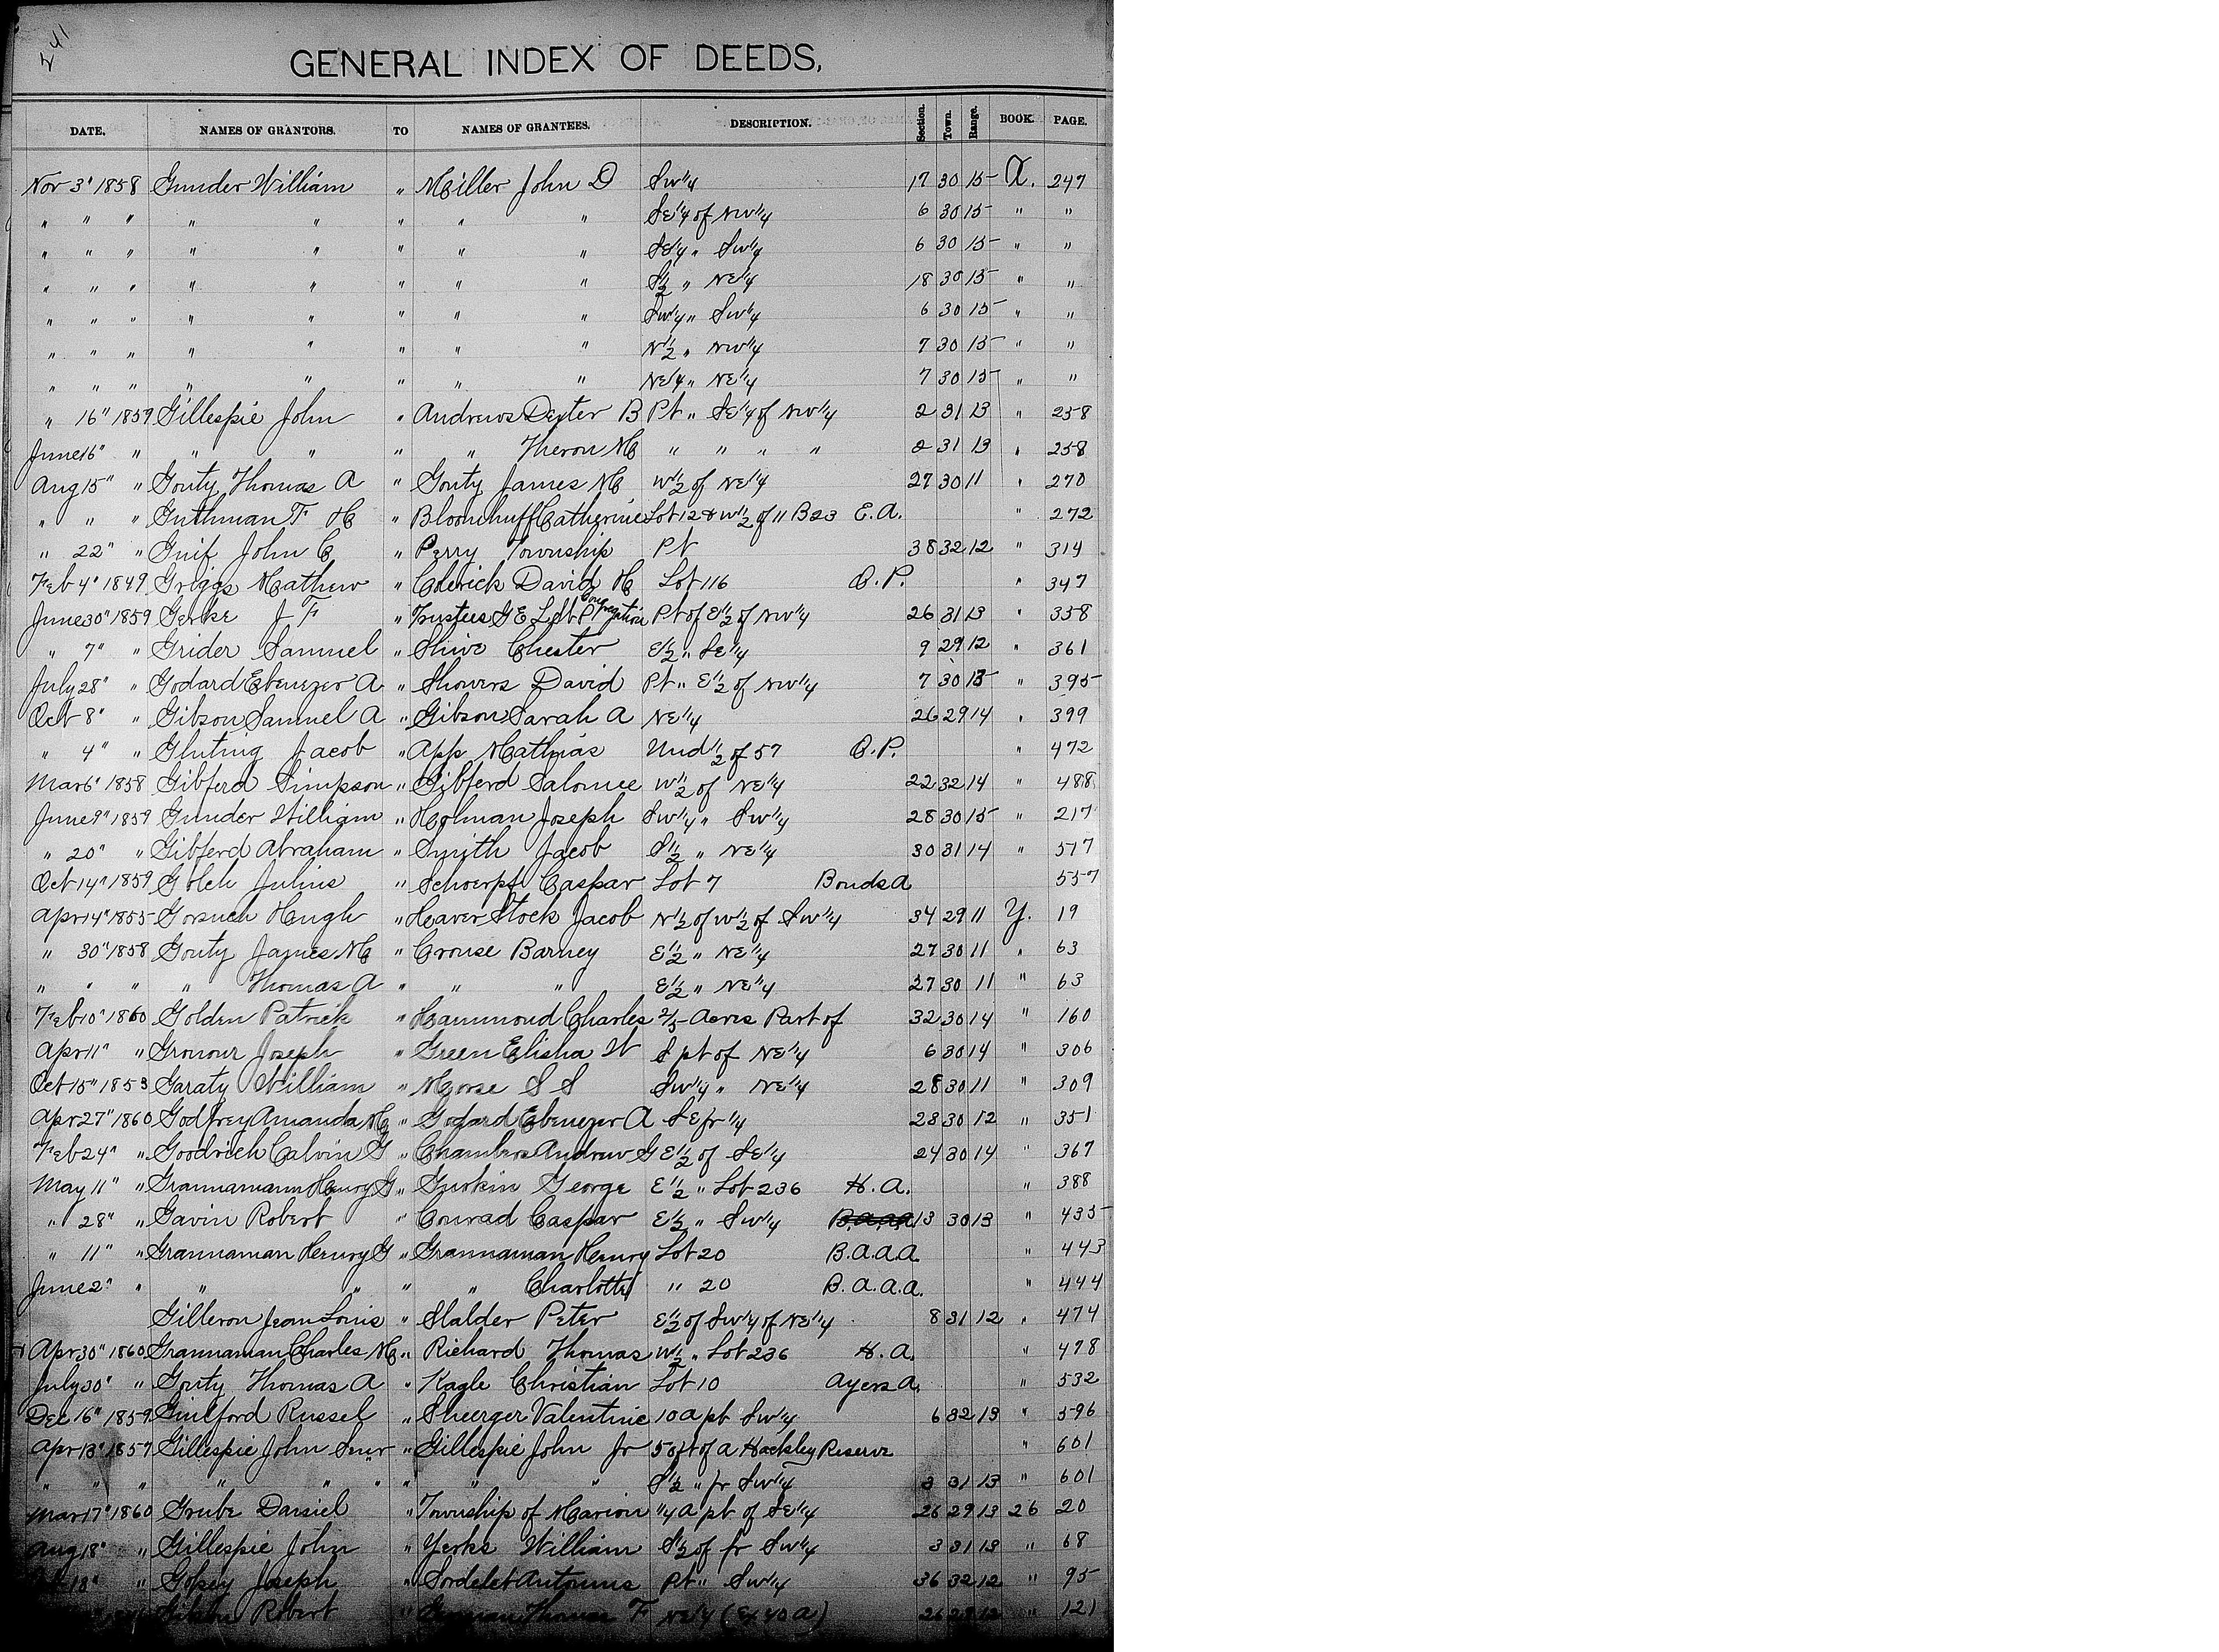 241
GENERAL INDEX OF DEEDS,
DATE. NAMES OF GRANTORS. TO NAMES OF GRANTEES. DESCRIPTION. Section. Town. Range. BOOK. PAGE.
Nov 3" 1858 Gunder William " Miller John D Sw1/4 17 30 15 X. 247
" " " " " " " " SE1/4 of NW1/4 6 30 15 " "
" " " " " " " " SE1/4 " Sw1/4 6 30 15 " "
" " " " " " " " S1/2 " NE1/4 18 30 15 " "
" " " " " " " " Sw1/4 " Sw1/4 6 30 15 " "
" " " " " " " " N1/2 " NW1/4 7 30 15 " "
" " " " " " " " NE1/4 " NE1/4 7 30 15 " "
" 16" 1859 Gillespie John " Andrews Dexter B Pt " SE1/4 of NW1/4 2 31 13 " 258
June 16" " " " " " Theron M " " " " 2 31 13 " 258
Aug 15" " Gouty Thomas A " Gouty James M W1/2 of NE1/4 27 30 11 " 270
" " " Guthman F H " Bloomhuff Catherine Lot 12 & W1/2 of 11 B23 E.A. " 272
" 22" " Guif John C " Perry Township Pt 38 32 12 " 314
Feb 4" 1849 Griggs Mathew " Colerick David H Lot 116 O.P. " 347
June 30" 1859 Gerke J F " Trustees G E L St P Congregation Pt of E1/2 of NW1/4 26 31 13 " 358
" 7" " Grider Samuel " Shive Chester E1/2 " SE1/4 9 29 12 " 361
July 28" " Godard Ebenezer A " Showers David Pt " E1/2 of NW1/4 7 30 13 " 395
Oct 8" " Gibson Samuel A " Gibson Sarah A NE1/4 26 29 14 " 399
" 4" " Gluting Jacob " App Mathias Und 1/2 of 57 O.P. " 472
Mar 6" 1858 Gibferd Simpson " Gibferd Salomee W1/2 of NE1/4 22 32 14 " 488
June 9" 1859 Gunder William " Holman Joseph Sw1/4 " Sw1/4 28 30 15 " 217
" 20" " Gibferd Abraham " Smith Jacob S1/2 " NE1/4 30 31 14 " 517
Oct 14" 1859 Golch Julius " Schoerpf Caspar Lot 7 Bonds A 557
Apr 14" 1855 Gorsuch Hugh " Heaver Stock Jacob N1/2 of W1/2 of Sw1/4 34 29 11 Y. 19
" 30" 1858 Gouty James M " Crouse Barney E1/2 " NE1/4 27 30 11 " 63
" " " " Thomas A " " " E1/2 " NE1/4 27 30 11 " 63
Feb 10" 1860 Golden Patrick " Hammond Charles 2/5 Acres Part of 32 30 14 " 160
Apr 11" " Gronour Joseph " Green Elisha W S pt of NE1/4 6 30 14 " 306
Oct 15" 1853 Garaty William " Morse S S Sw1/4 " NE1/4 28 30 11 " 309
Apr 27" 1860 Godfrey Amanda M " Godard Ebenezer A SE fr 1/4 28 30 12 " 351
Feb 24" " Goodrich Calvin G " Chambers Andrew G E1/2 of SE1/4 24 30 14 " 367
May 11" " Grannamann Henry G " Guskin George E1/2 " Lot 236 H.A. " 388
" 28" " Gavin Robert " Conrad Caspar E1/2 " Sw1/4 B.a.a.a 13 30 13 " 435
" 11" " Grannaman Henry G " Grannaman Henry Lot 20 B.a.a.a " 443
June 2" " " " " " Charlotte " 20 B.a.a.a. " 444
Gilleron Jean Louis " Slalder Peter E1/2 of Sw1/4 of NE1/4 8 31 12 " 474
Apr 30" 1860 Grannaman Charles M " Richard Thomas W1/2 " Lot 236 H.A. " 478
July 30" " Gouty Thomas A " Kagle Christian Lot 10 Ayers A. " 532
Dec 16" 1859 Guilford Russel " Sheerger Valentine 10 a pt Sw1/4 6 32 13 " 596
Apr 13" 1857 Gillespie John Senr " Gillespie John Jr 50 ft of a Hackley Reserve " 601
" " " " " " " " " S1/2 " fr Sw1/4 3 31 13 " 601
Mar 17" 1860 Grube Daniel " Township of Marion 1/4 a pt of SE1/4 26 29 13 26 20
Aug 18" " Gillespie John " Yerks William S1/2 of fr Sw1/4 3 31 13 " 68
18" " Gopey Joseph " Sordelet Antonus Pt " Sw1/4 36 32 12 " 95
Robert " Thomas F NE1/4 (Ex 40 a) 26 29 12 " 121